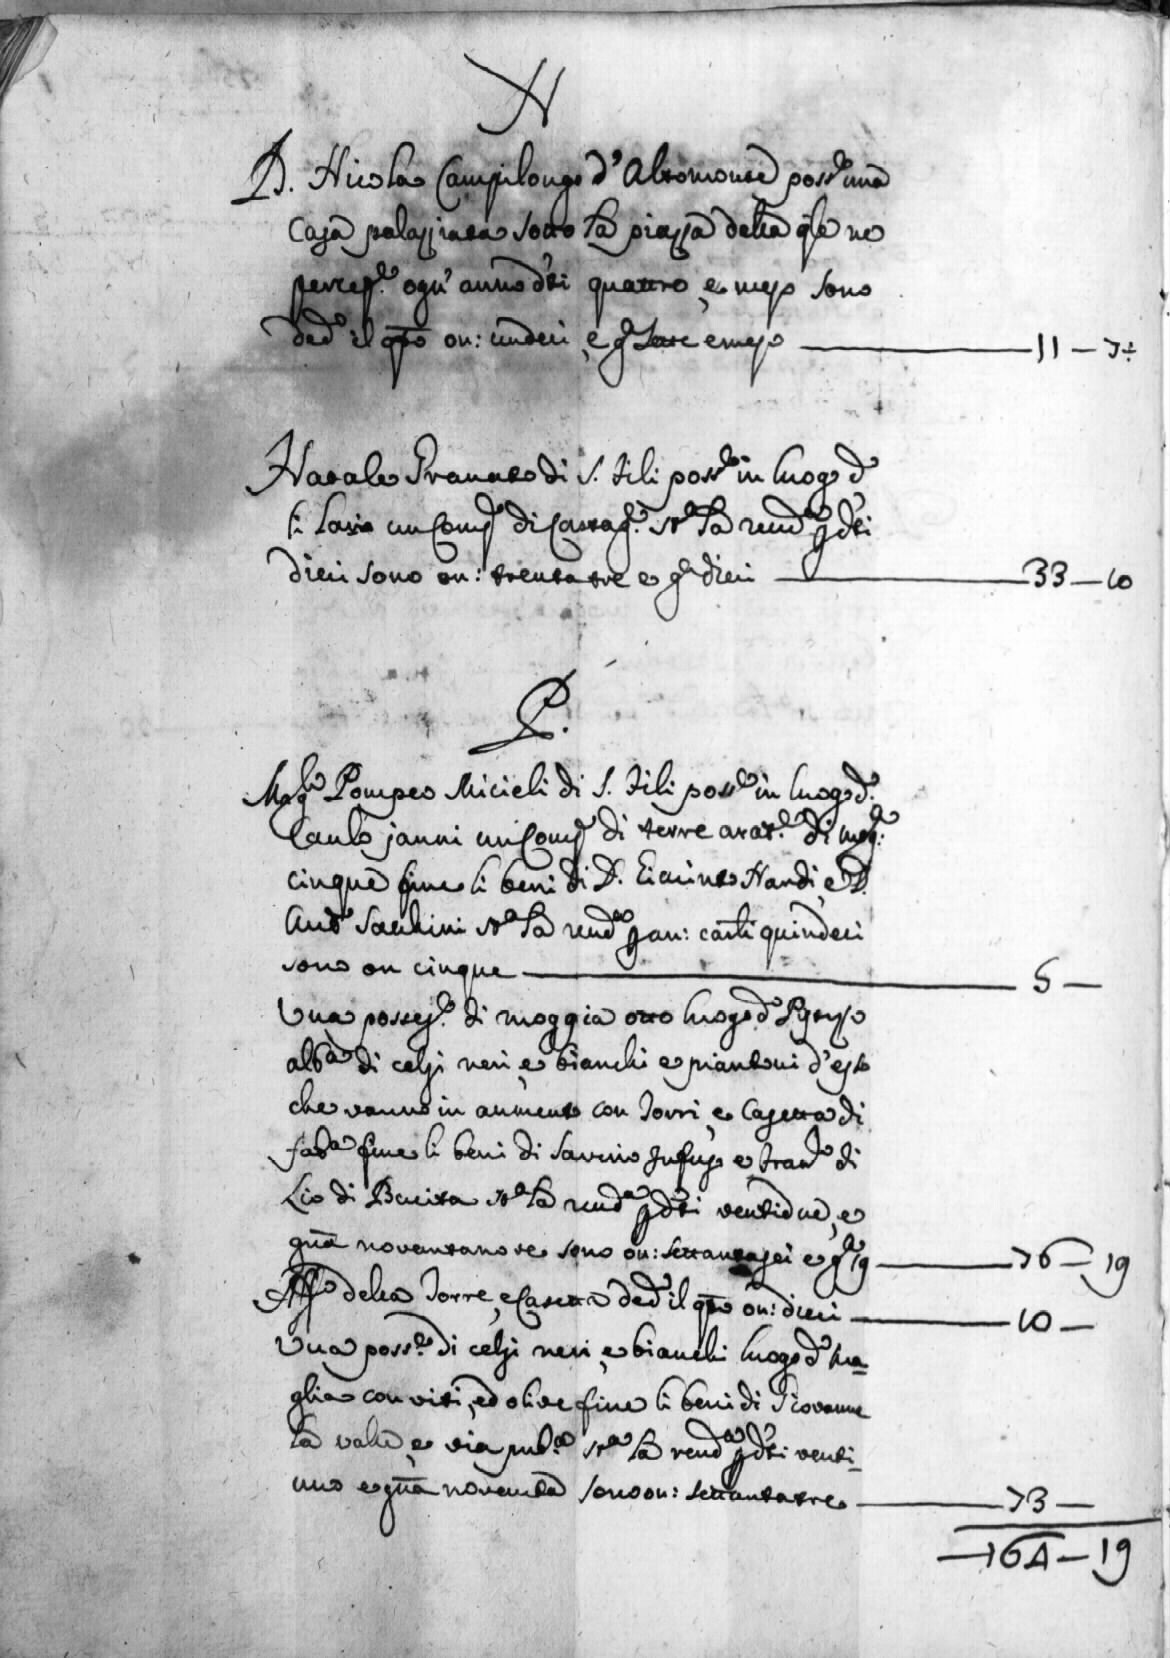 N
D. Nicola Campilongo d'Altomonte poss.e una
Casa palazziata sotto la piazza della q.le ne
percep.e ogn' anno d.ti quattro, e mezo sono
ded.o il q.to on: undeci, e g.a sette e mezo 11 — 7½
Natale Granato di S. Fili poss.e in luogo d.o
li Lavia un Com.o di Castag.e st.a la rend.a p d.ti
dieci sono on: trenta tre e g.a dieci 33 — 10
P.
Mag.co Pompeo Micieli di S. Fili poss.e in luogo d.o
Caulo janni un Com.o di terre arat.e di mog.a
cinque fine li beni di D. Giacinto Nardi, e D.
And.a Sacchini st.a la rend.a p an: carli quindeci
sono on cinque 5 —
Una possess.e di moggia otto luogo d.o
alb.a di celzi neri, e bianchi e piantoni d'essi
che vanno in aumento con Torri, e Casetta di
fab.a fine li beni di Saverio e Fran.co di
Lio di Bucita st.a la rend.a p d.ti ventidue, e
g.na novantanove sono on: settantasei e g.a 19 76 — 19
Aff.o della Torre, e Casetta ded.o il q.to on: dieci 10 —
Una poss.e di celzi neri, e bianchi luogo d.o
glia con viti, ed olive fine li beni di Giovanne
la valle, e via pub.a st.a la rend.a p d.ti venti-
uno e g.na novanta sono on: settantatre 73 —
164 — 19